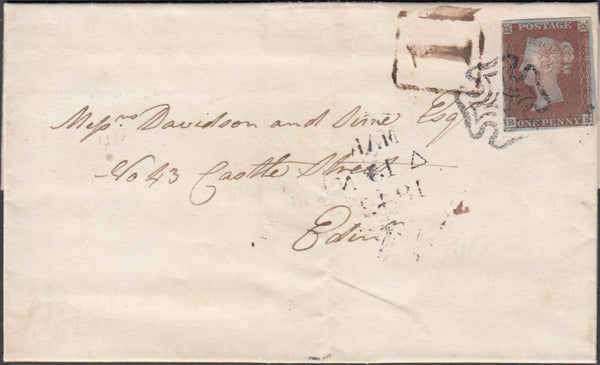 1
POSTAGE
ONE PENNY
Messrs Davidson and Syme Esqr
No 43 Castle Street
Edinr